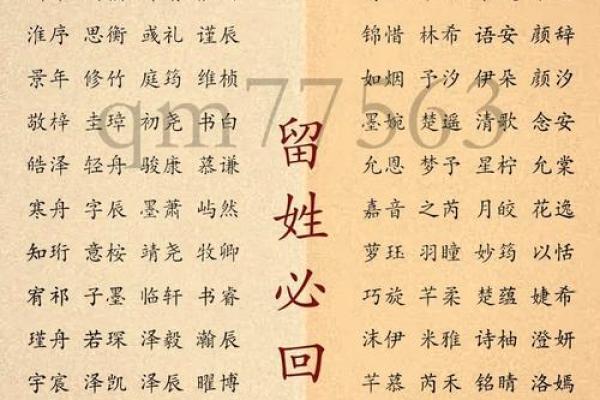 淮序 思衡 彧礼 谨辰
景年 修竹 庭筠 维桢
敬梓 圭璋 初尧 书白
皓泽 轻舟 骏康 慕谦
寒舟 字辰 墨萧 屿然
知珩 意桉 靖尧 牧卿
宥祁 子墨 临轩 书睿
瑾舟 若琛 泽毅 瀚辰
宇宸 泽凯 泽辰 曜博
qm77563
留姓必回
锦惜 林希 语安 颜辞
如烟 予汐 伊朵 颜汐
墨婉 楚遥 清歌 念安
允恩 梦予 星柠 允棠
嘉音 之芮 月皎 花逸
萝珏 羽瞳 妙筠 以恬
巧旋 芊柔 楚蕴 婕希
沫伊 米雅 诗柚 澄妍
芊慕 芮禾 铭晴 洛嫣